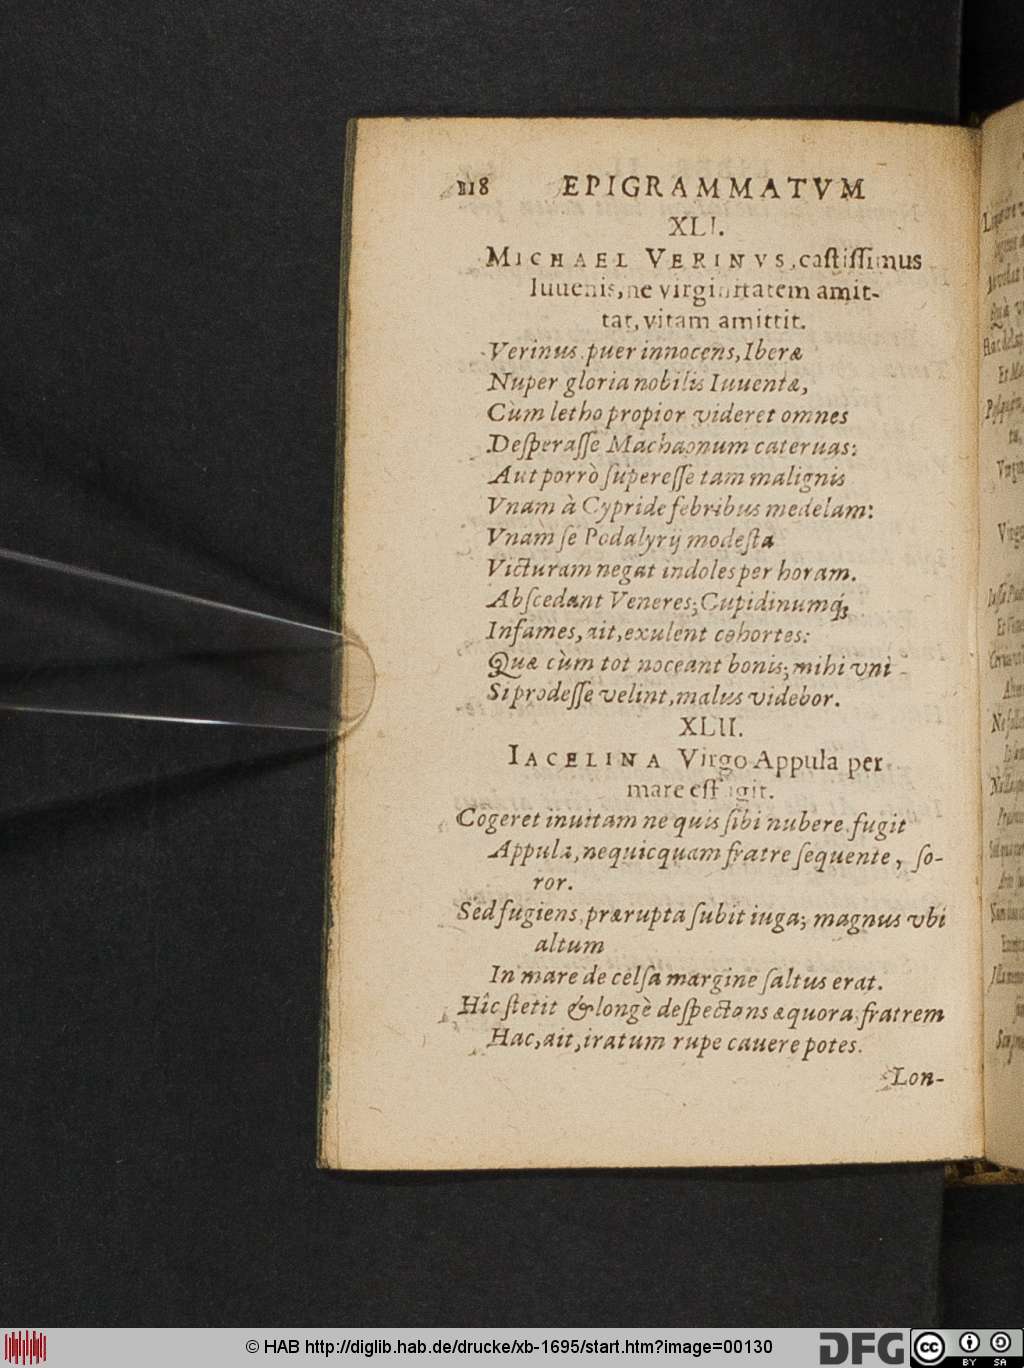 118 EPIGRAMMATVM
XLI.
MICHAEL VERINVS, castissimus
Iuuenis, ne virginitatem amit-
tat, vitam amittit.
Verinus puer innocens, Iberæ
Nuper gloria nobilis Iuuentæ,
Cùm letho propior videret omnes
Desperasse Machaonum cateruas:
Aut porrò superesse tam malignis
Vnam à Cypride febribus medelam:
Vnam se Podalyrij modesta
Victuram negat indoles per horam.
Abscedant Veneres; Cupidinumq́;
Infames, ait, exulent cohortes:
Quæ cùm tot noceant bonis; mihi vni
Si prodesse velint, malus videbor.
XLII.
IACELINA Virgo Appula per
mare effugit.
Cogeret inuitam ne quis sibi nubere fugit
Appula, nequicquam fratre sequente, so-
ror.
Sed fugiens prærupta subit iuga; magnus vbi
altum
In mare de celsa margine saltus erat.
Hîc stetit & longè despectans æquora fratrem
Hac, ait, iratum rupe cauere potes.
Lon-
© HAB http://diglib.hab.de/drucke/xb-1695/start.htm?image=00130
DFG
cc BY SA